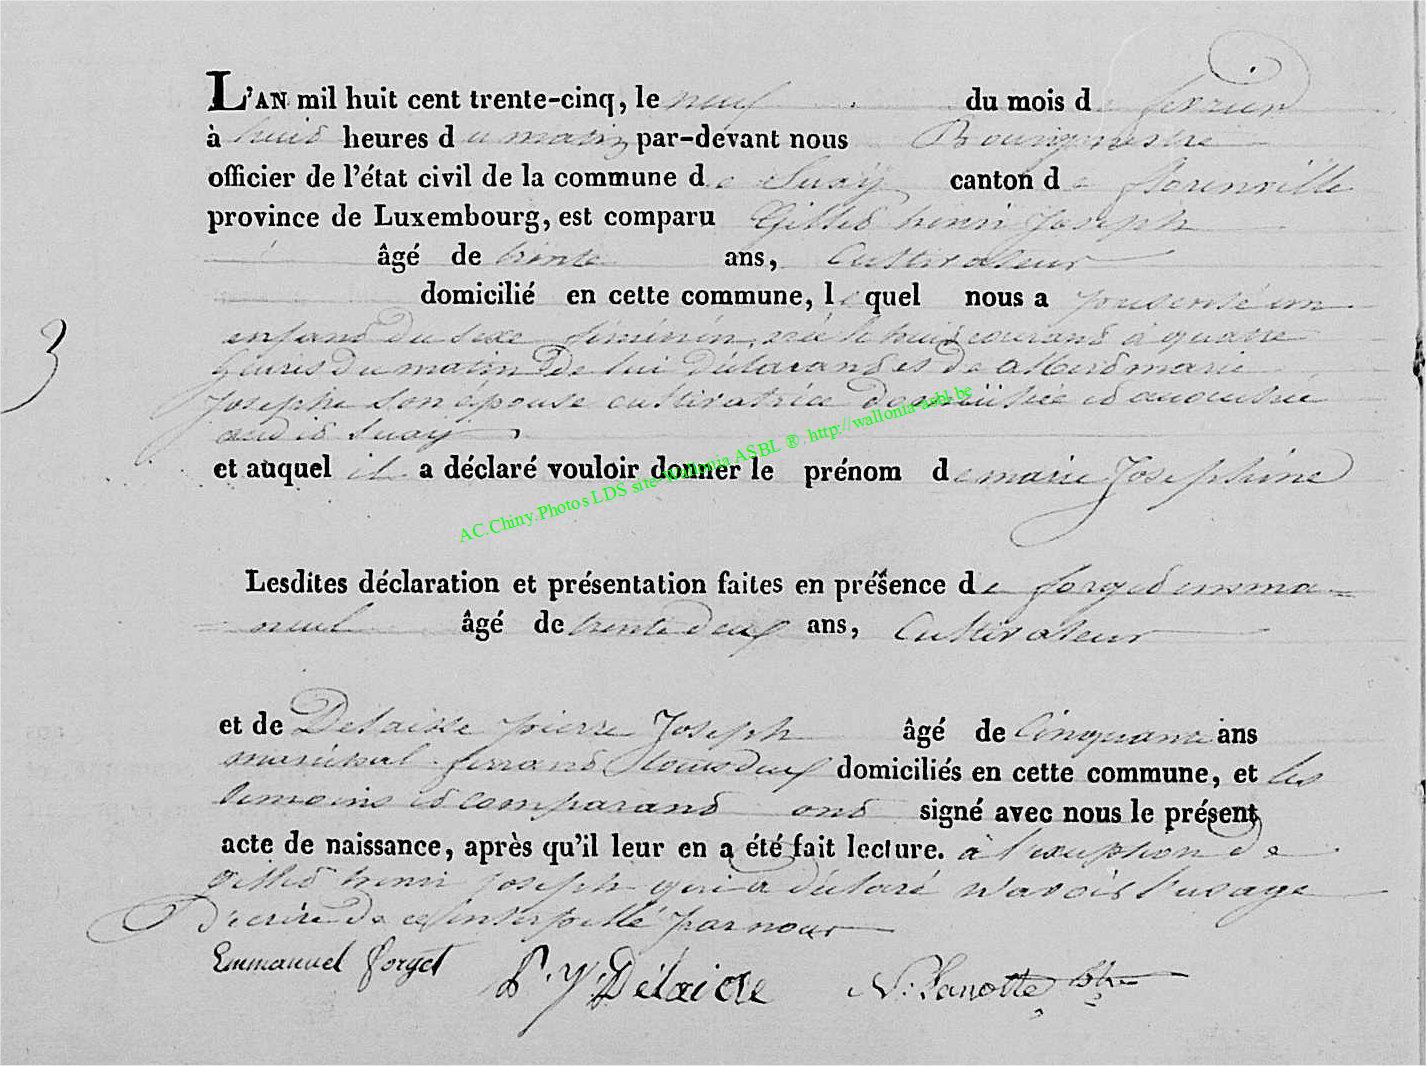 L'AN mil huit cent trente-cinq, le neuf du mois de fevrier
à huid heures du matin par-devant nous Bourgmestre
officier de l'état civil de la commune de Suxÿ canton de florenville
province de Luxembourg, est comparu Gilled henri Joseph
âgé de trente ans, Cultivateur
domicilié en cette commune, lequel nous a présenté un
enfand du sexe féminin, née le huid courand à quatre
heures du matin de lui déclarand et de marie
Josephe son épouse cultivatrice domiciliée
audid Suxÿ
3
et auquel il a déclaré vouloir donner le prénom de marie Josephine
Lesdites déclaration et présentation faites en présence de forged emma=
=nuel âgé de trente deux ans, Cultivateur
et de Delaisse pierre Joseph âgé de Cinquante ans
maréchal ferrand domiciliés en cette commune, et les
temoins et comparand ond signé avec nous le présent
acte de naissance, après qu'il leur en a été fait lecture. à l'exeption de
Gilled henri joseph qui a déclaré n'avoir l'usage
D'ecrire de ce interpellé par nous
Emmanuel forget P. J. Delaisse N. Lanotte
AC.Chiny.Photos LDS site-Wallonia ASBL ®. http://wallonia-asbl.be